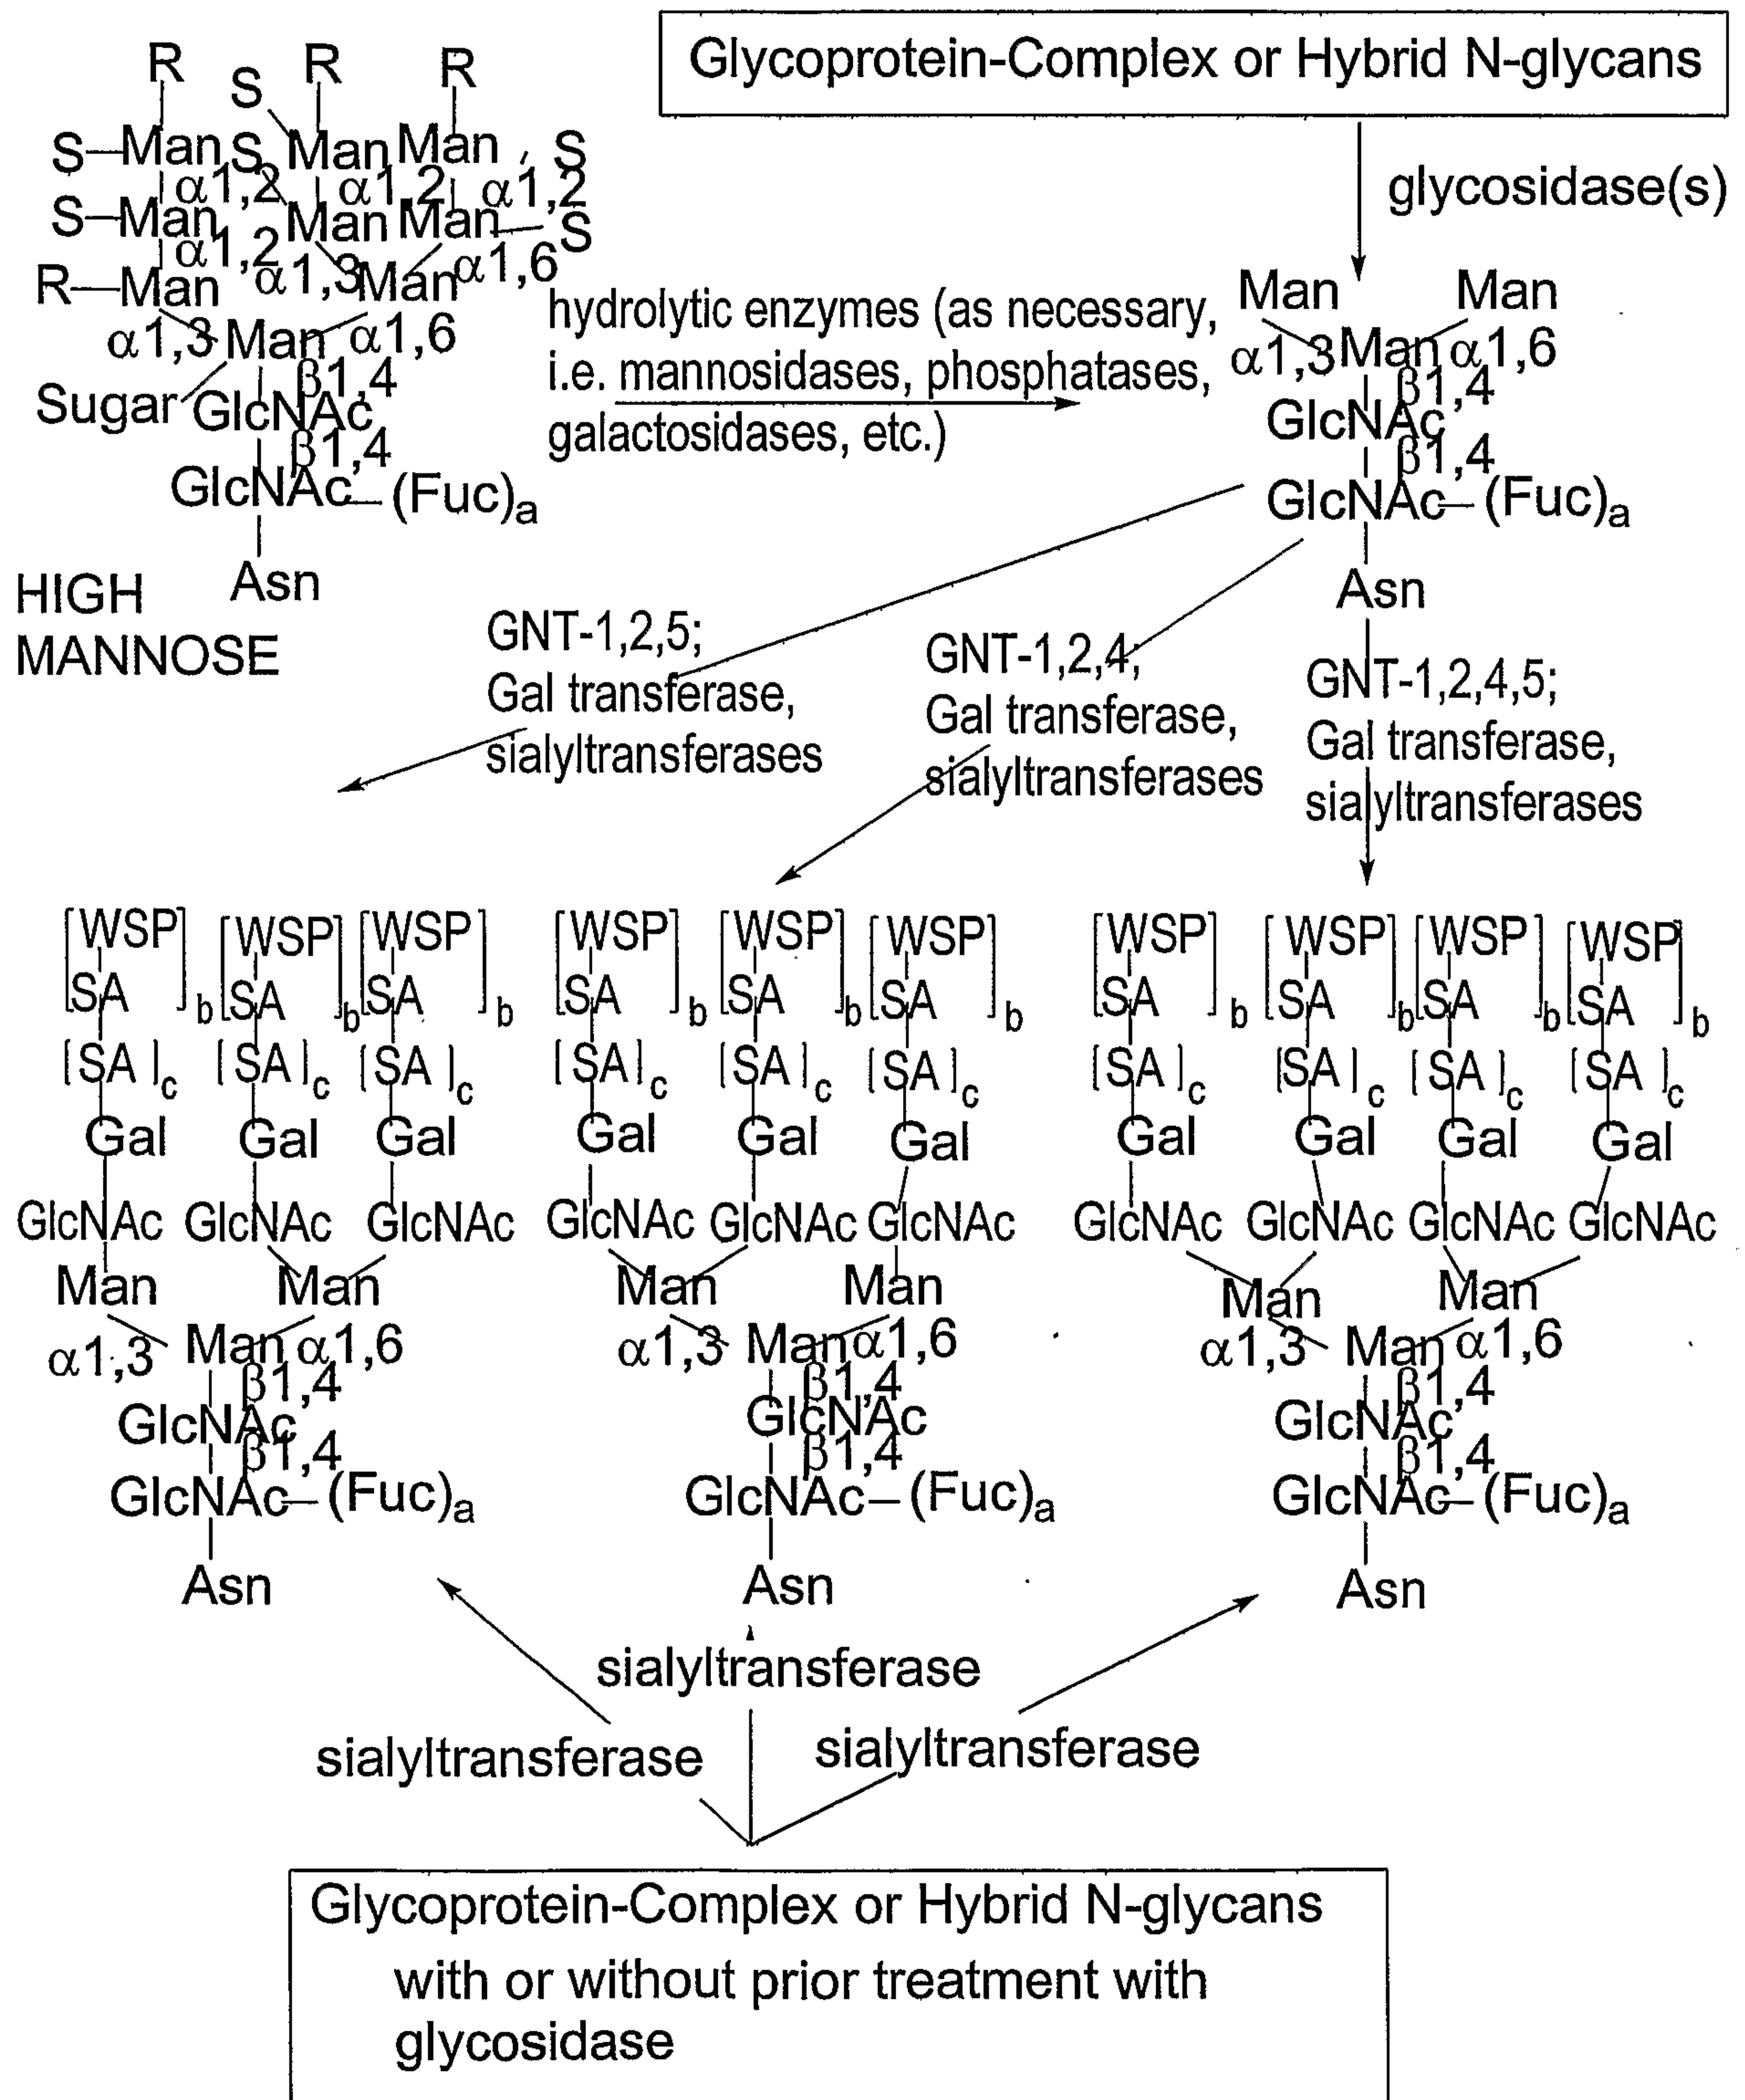 Glycoprotein-Complex or Hybrid N-glycans
R S R R
S Man S Man Man S
α1,2 α1,2 α1,2
S Man Man Man S
α1,2 α1,3 α1,6
R Man Man
α1,3 Man α1,6
β1,4
Sugar GlcNAc
β1,4
GlcNAc (Fuc)a
Asn
HIGH
MANNOSE
glycosidase(s)
hydrolytic enzymes (as necessary,
i.e. mannosidases, phosphatases,
galactosidases, etc.)
Man Man
α1,3 Man α1,6
β1,4
GlcNAc
β1,4
GlcNAc (Fuc)a
Asn
GNT-1,2,5;
Gal transferase,
sialyltransferases
GNT-1,2,4;
Gal transferase,
sialyltransferases
GNT-1,2,4,5;
Gal transferase,
sialyltransferases
[WSP [WSP [WSP
SA]b SA]b SA]b
[SA]c [SA]c [SA]c
Gal Gal Gal
GlcNAc GlcNAc GlcNAc
Man Man
α1,3 Man α1,6
β1,4
GlcNAc
β1,4
GlcNAc (Fuc)a
Asn
[WSP [WSP [WSP
SA]b SA]b SA]b
[SA]c [SA]c [SA]c
Gal Gal Gal
GlcNAc GlcNAc GlcNAc
Man Man
α1,3 Man α1,6
β1,4
GlcNAc
β1,4
GlcNAc (Fuc)a
Asn
[WSP [WSP [WSP [WSP
SA]b SA]b SA]b SA]b
[SA]c [SA]c [SA]c [SA]c
Gal Gal Gal Gal
GlcNAc GlcNAc GlcNAc GlcNAc
Man Man
α1,3 Man α1,6
β1,4
GlcNAc
β1,4
GlcNAc (Fuc)a
Asn
sialyltransferase
sialyltransferase
sialyltransferase
Glycoprotein-Complex or Hybrid N-glycans
with or without prior treatment with
glycosidase